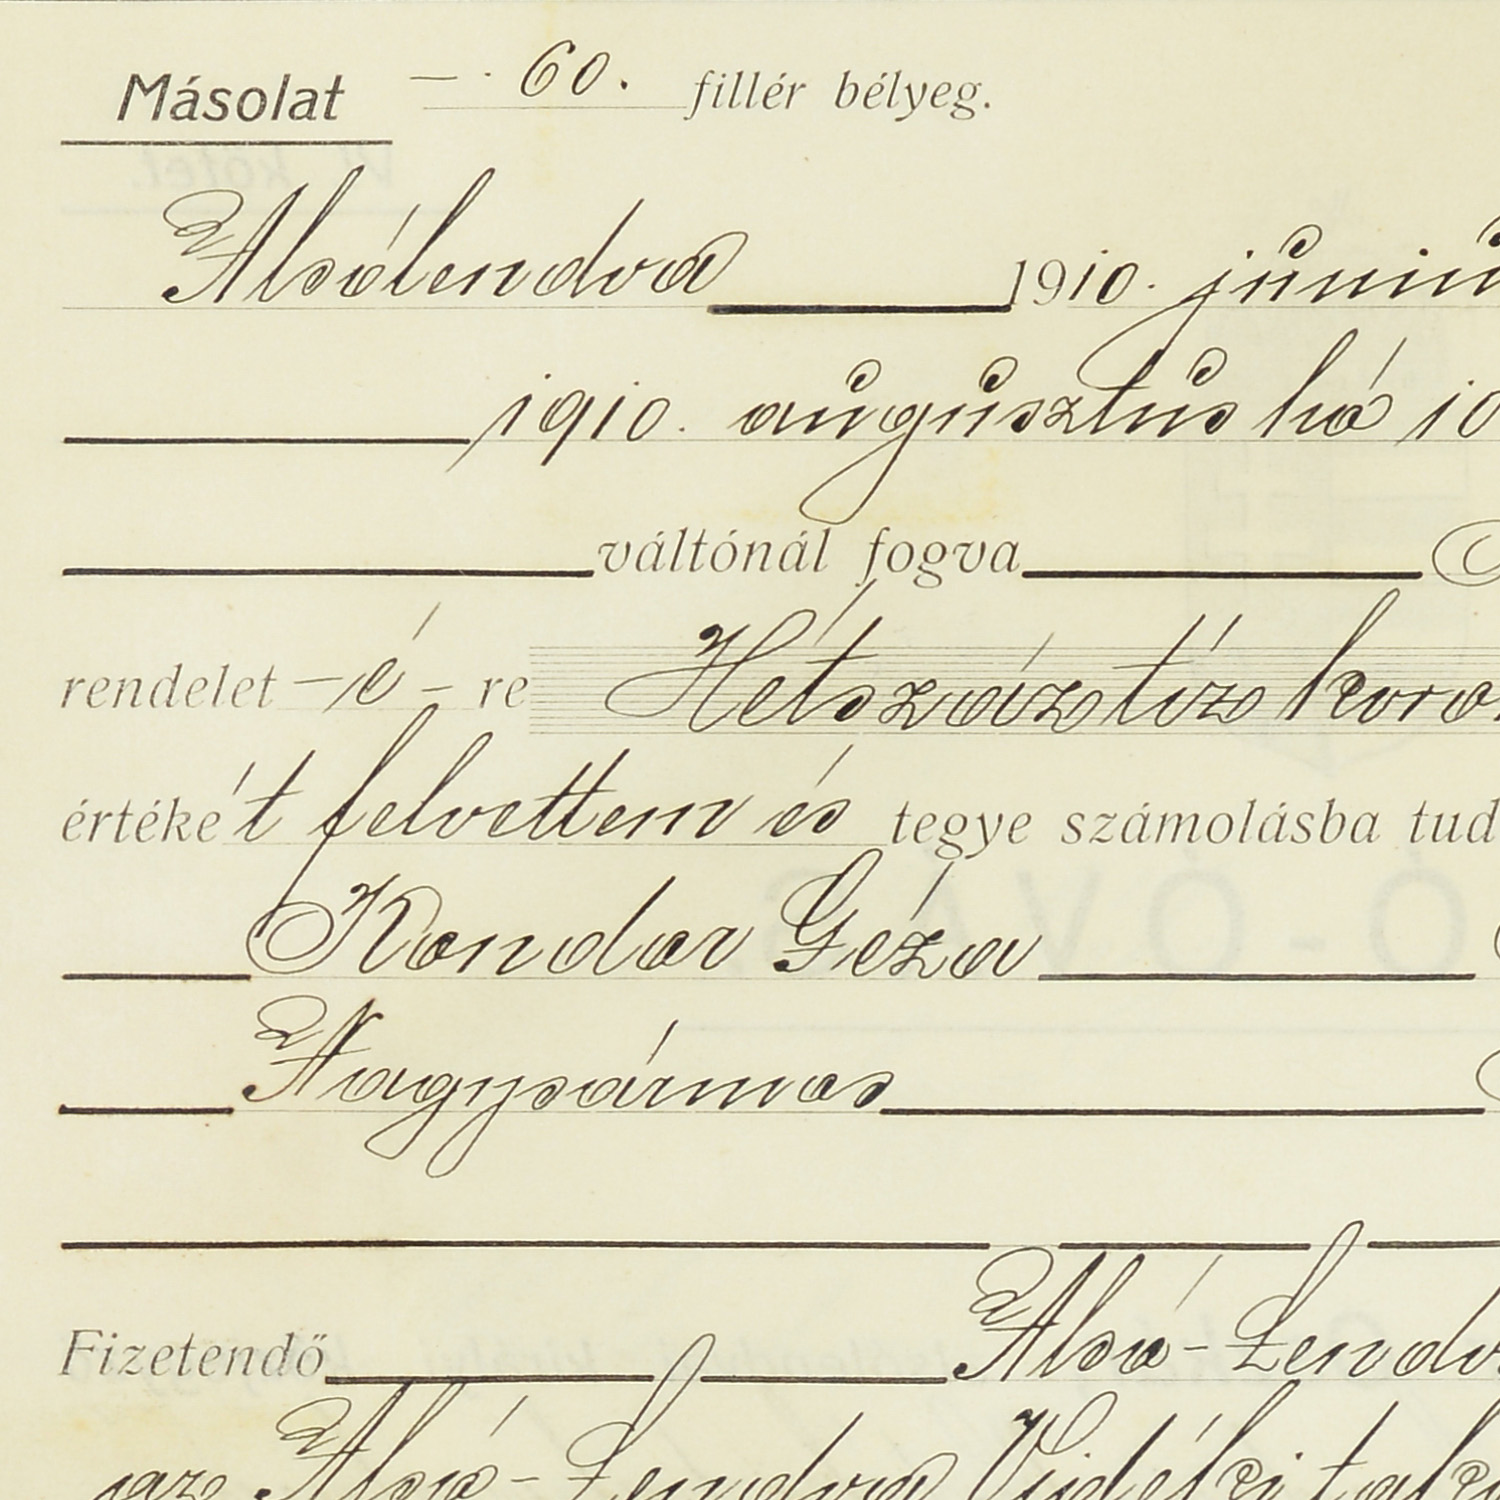 Másolat — · 60. fillér bélyeg.
Alsólendva 1910. júniu
1910. augusztus hó 10
váltónál fogva
rendelet — é — re Hétszáztíz koro
értéké't felvettem és tegye számolásba tud
Kondor Géza
Nagysármás
Fizetendő Alsó-Lendv
az Alsó-Lendva Vidéki tak